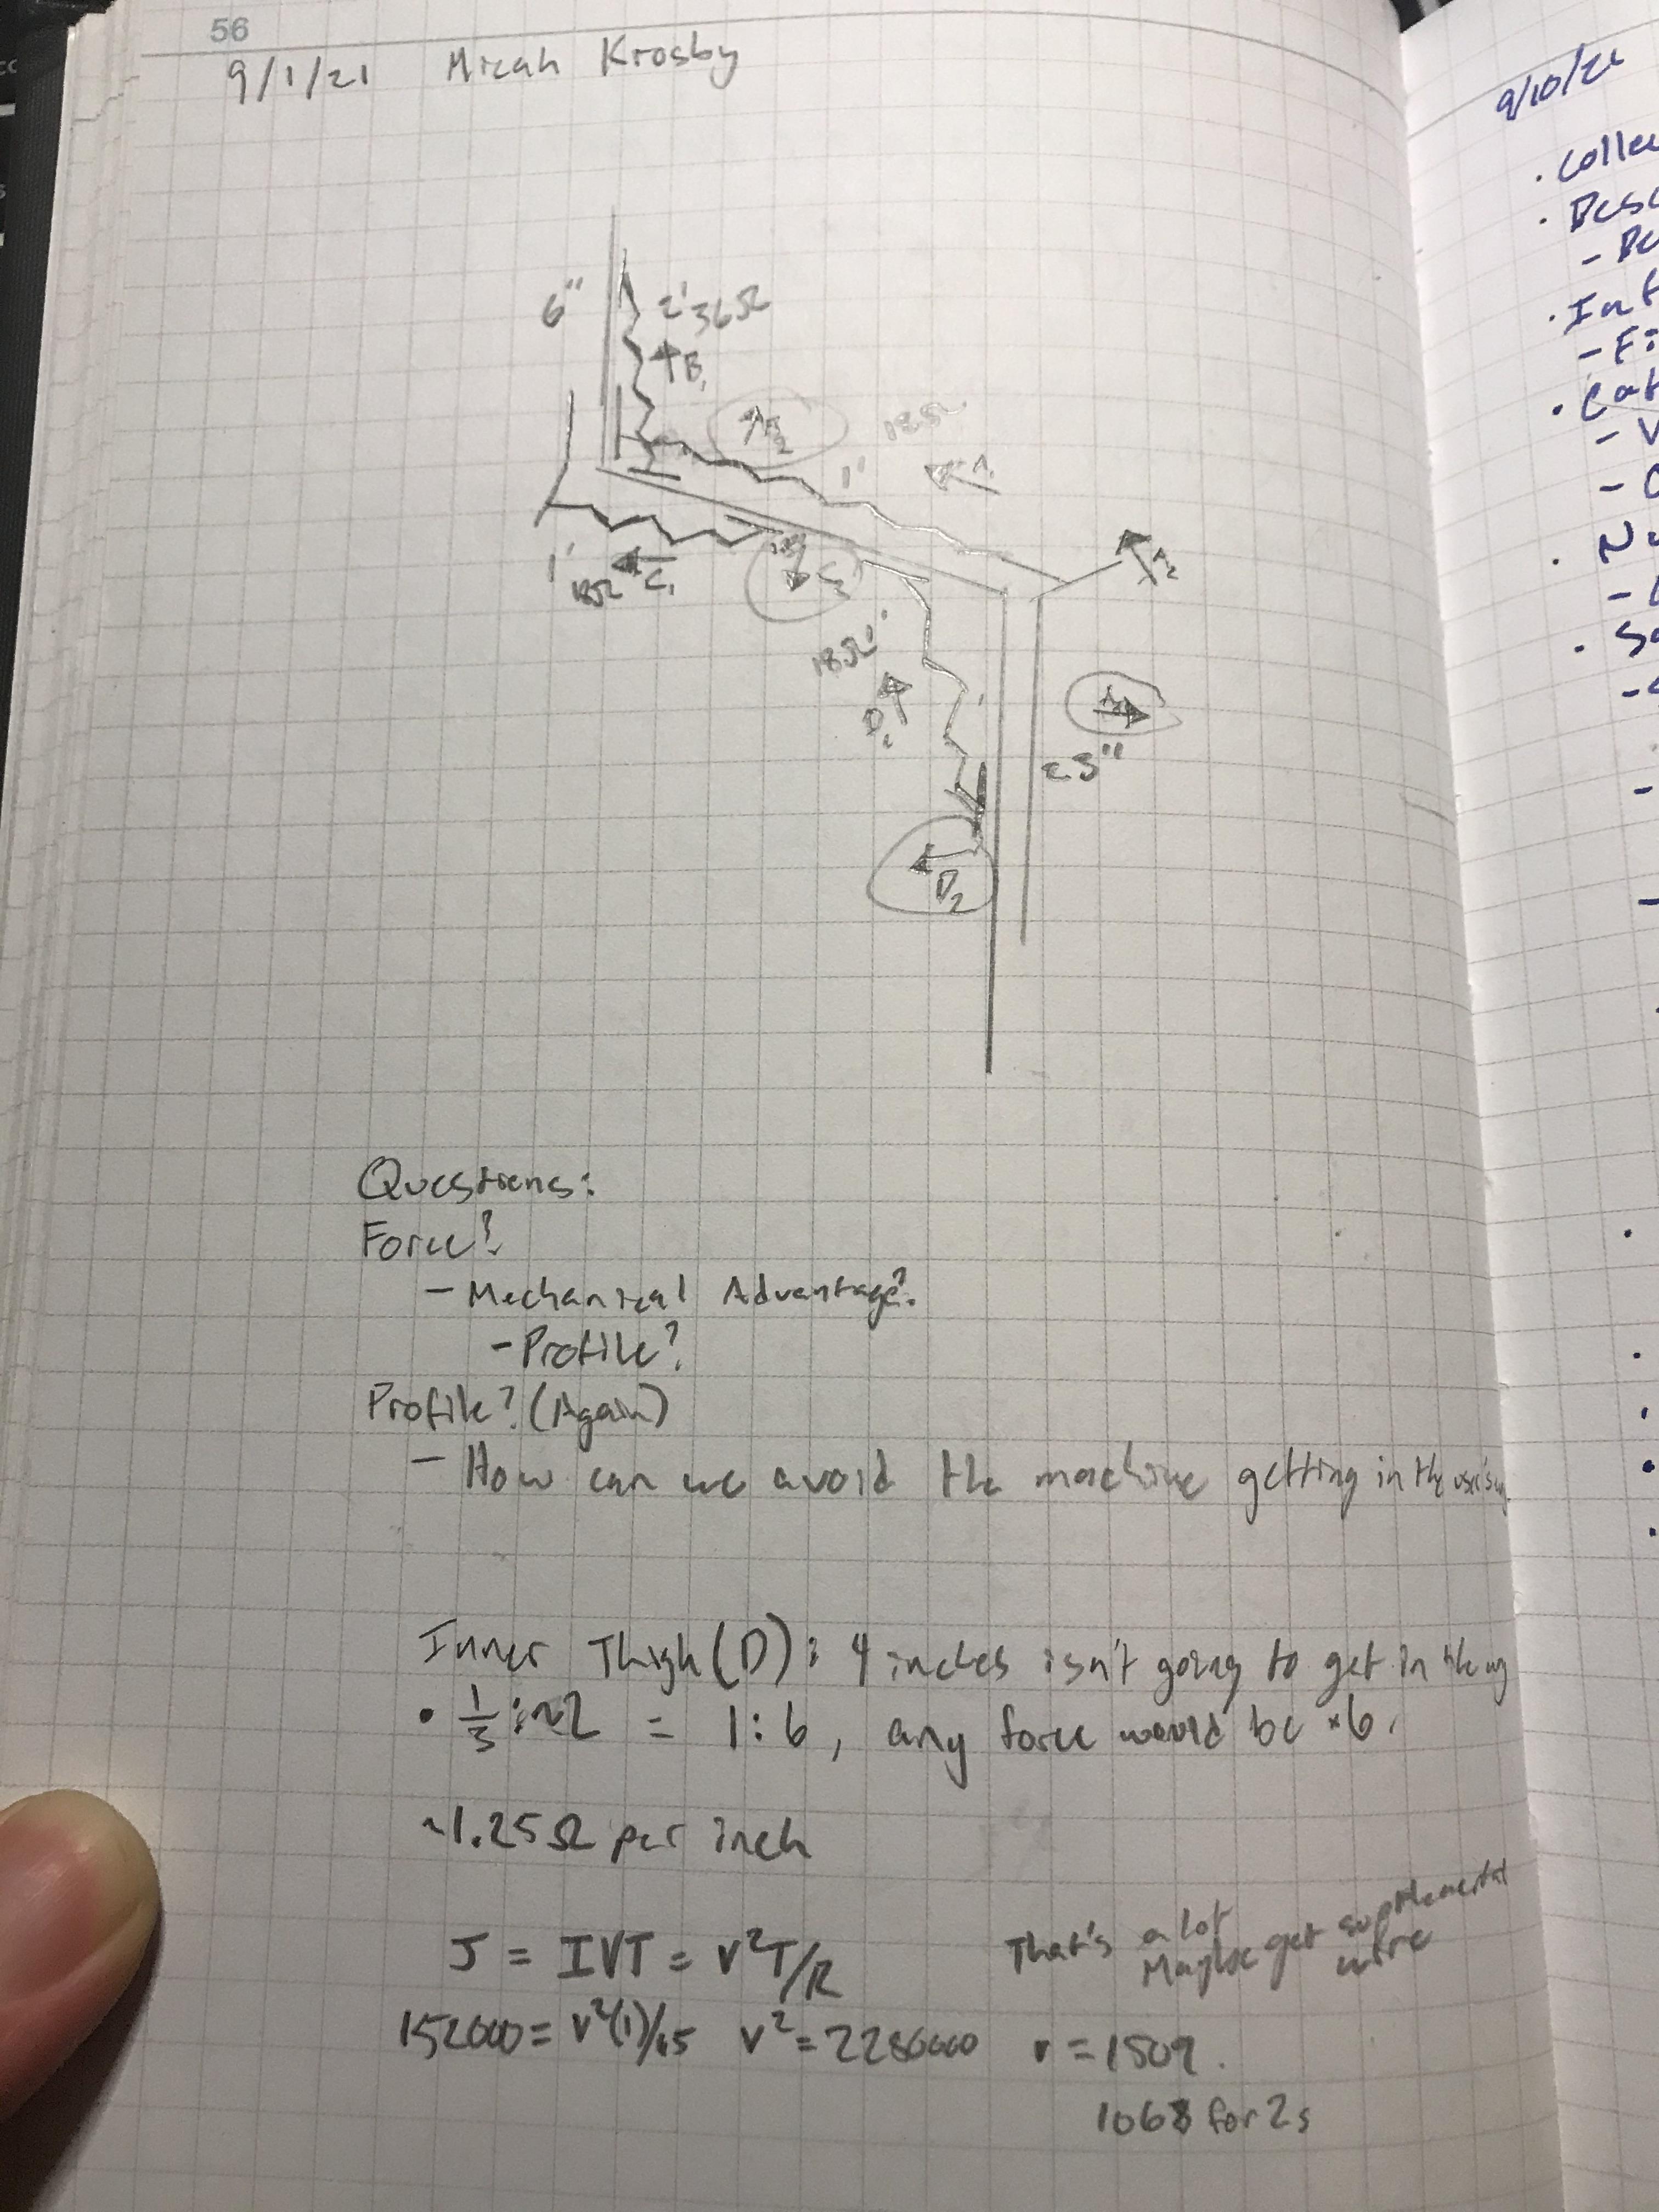 56
9/1/21 Micah Krosby
6" 2' 36Ω
B₁
18Ω
1' A₁
1' C₁ A₂
18Ω
18Ω 1'
D₁
23"
D₂
Questions:
Force?
- Mechanical Advantage?
- Profile?
Profile? (Again)
- How can we avoid the machine getting in the user's way
Inner Thigh (D): 4 inches isn't going to get in the way
• 1/3 : ~2 = 1:6, any force would be ×6.
~1.25Ω per inch
J = IVT = V²T/R
That's a lot
Maybe get supplemental
wire
152000 = V²(1)/15 V² = 2280000 V = 1509.
1068 for 2s
9/10/21